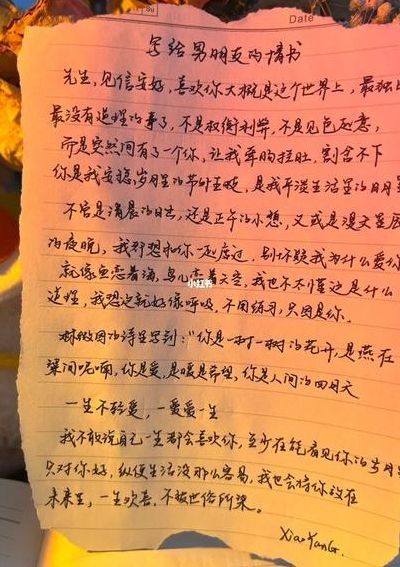 Date
写给男朋友的情书
先生，见信安好，喜欢你大概是这个世界上，最独
最没有道理的事了，不是权衡利弊，不是见色起意，
而是突然间有了一个你，让我牵肠挂肚，割舍不下
你是我安稳岁月里的节外生枝，是我平淡生活里的日月星
不管是清晨的日出，还是正午的小憩，又或是漫天星辰
的夜晚，我都想和你一起度过，别怀疑我为什么爱你
就像鱼恋着海，鸟儿恋着天空，我也不懂这是什么
道理，我想这就好像呼吸，不用练习，只因是你。
小红书
林徽因的诗里写到："你是一树一树的花开，是燕在
梁间呢喃，你是爱，是暖是希望，你是人间的四月天
一生不轻爱，一爱爱一生
我不敢说自己一生都会喜欢你，至少在能看见你的岁月里
只对你好，纵使生活没那么容易，我也会将你放在
未来里，一生欢喜，不被世俗所染。
XiaoYanGr.